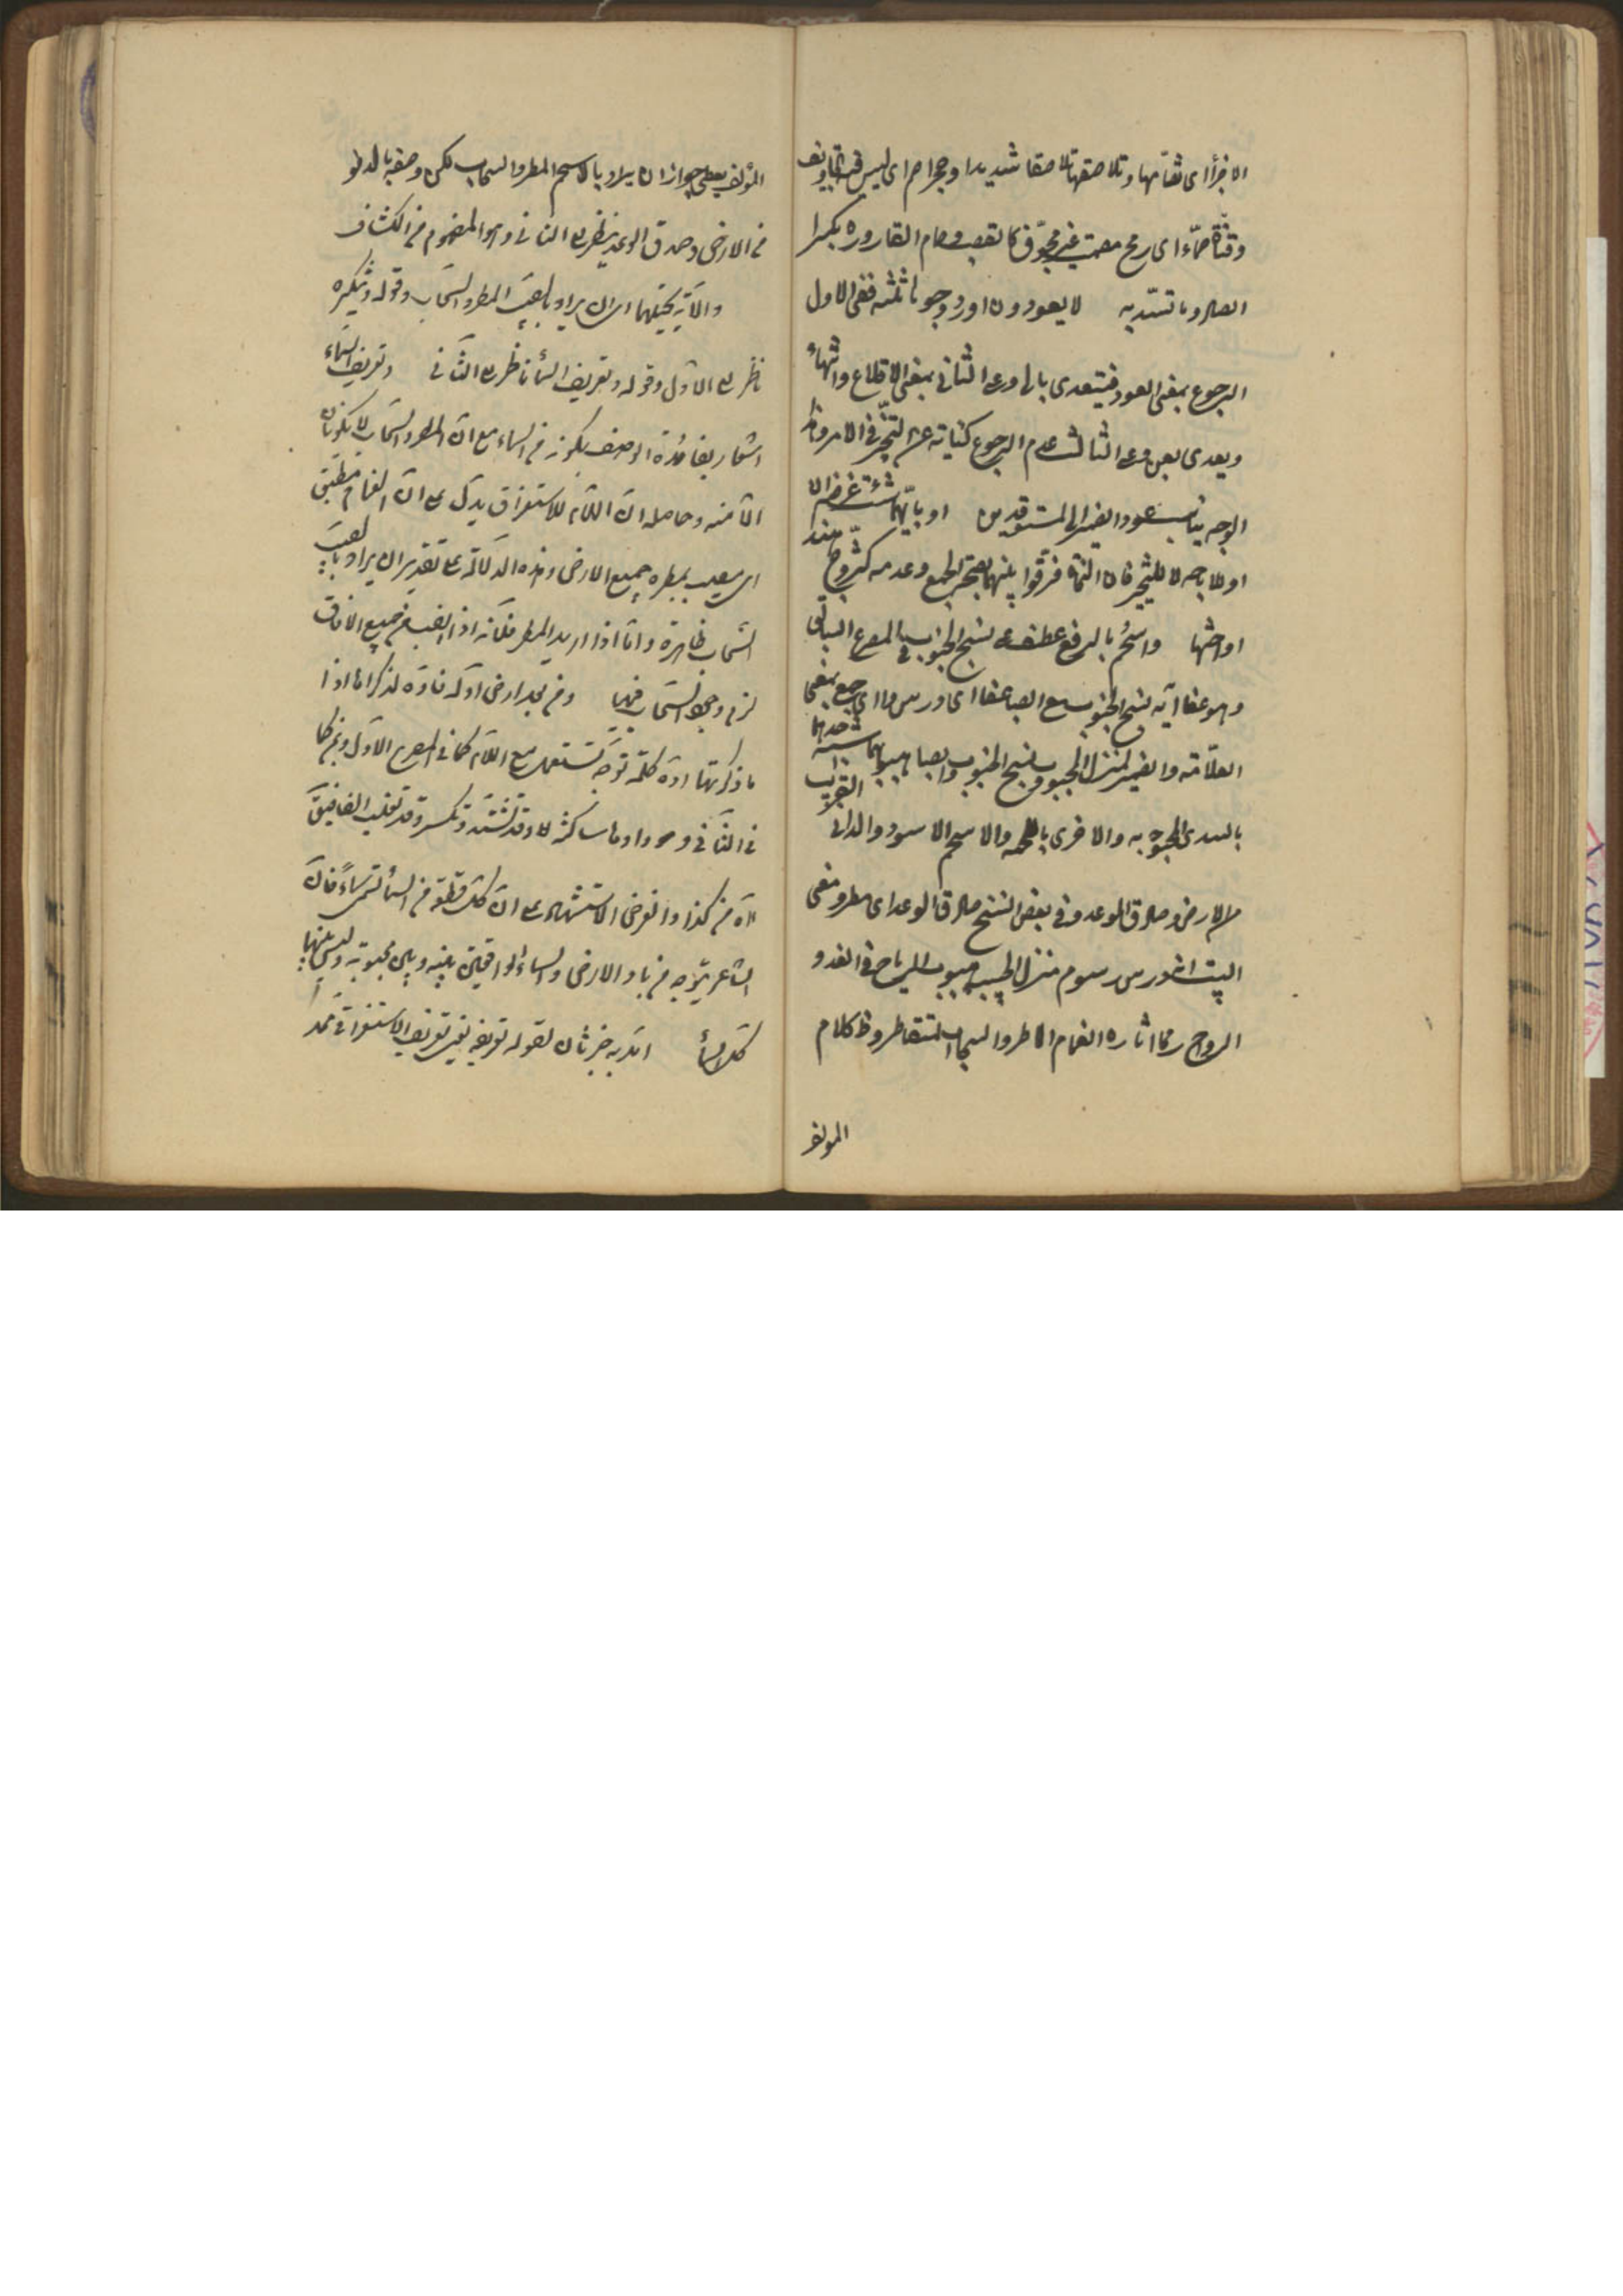 الاجزأ اى تضامها وتلاصقها تلاصقا شديدا وحجر اصم اى ليس فيه تجاويف
وقناة صماء اى رمح مصمت غير مجوف كالقصب وصمام القارورة بكسر
الصاد ما تسد به لا يعودون اورد وجوها ثلثة ففى الاول
الرجوع بمعنى العود فيتعدى بالى وعلى الثانى بمعنى الاقلاع والانتهاء
ويعدى بعن وعلى الثالث عدم الرجوع كناية عن التحير فى الامر وهذا
الوجه يناسب عود الضمير الى المستوقدين او بايهما شئت غرضه ان
او للاباحة لا للتخيير فان النحاة فرقوا بينهما بصحة الجمع وعدمه كتزوج هندا
او اختها واسحم بالرفع عطف على نسج الجنوب فى المصرع السابق
وهو عفا آيه نسج الجنوب مع الصبا عفا اى درس واى جمع بمعنى
العلامة والضمير لمنزل المحبوب ونسج الجنوب والصبا هبوبهما شبه احدهما
بالسدى والاخرى باللحمة والاسحم الاسود والدانى القريب
من الارض وصادق الوعد وفى بعض النسخ صادق الرعد اى مطر ومعنى
البيت اندرس رسوم منزل الحبيب هبوب الرياح فى الغدو
الرواح وما اثاره الغمام الماطر والسحاب المتقاطر وظ كلام
المولف
المؤلف يعطى جواز ان يراد بالاسحم المطر والسحاب لكن وصفه بالدنو
من الارض وصدق الوعد ينظر الى الثانى وهو المفهوم من الكشاف
والآية يحتملهما اى ان يراد بالصيب المطر والسحاب وقوله وتنكيره
ناظر الى الاول وقوله وتعريف السماء ناظر الى الثانى وتعريف السماء
اشعار بفائدة الوصف بكونه من السماء مع ان المطر والسحاب لا يكونان
الا منه وحاصله ان اللام للاستغراق يدل على ان الغمام مطبق
اى يصيب بمطره جميع الارض وهذه الدلالة على تقدير ان يراد بالصيب
السحاب ظاهرة واما اذا اريد المطر فلانه اذا انصب من جميع الافاق
لزم وجود السحاب فيها ومن بعد ارض اوله فاوه لذكراها اذا
ما ذكرتها اوه كلمة توجع تستعمل مع اللام كما فى المصرع الاول
فى الثانى
آه من كذا والغرض الاستشهاد على ان كل قطعة من السماء تسمى سماء فان
الشاعر يتوجع من بعد الارض والسماء الواقعين بينه وبين محبوبته وليس بينهما
كل السماء امد به خبر ثان لقوله تعريفه